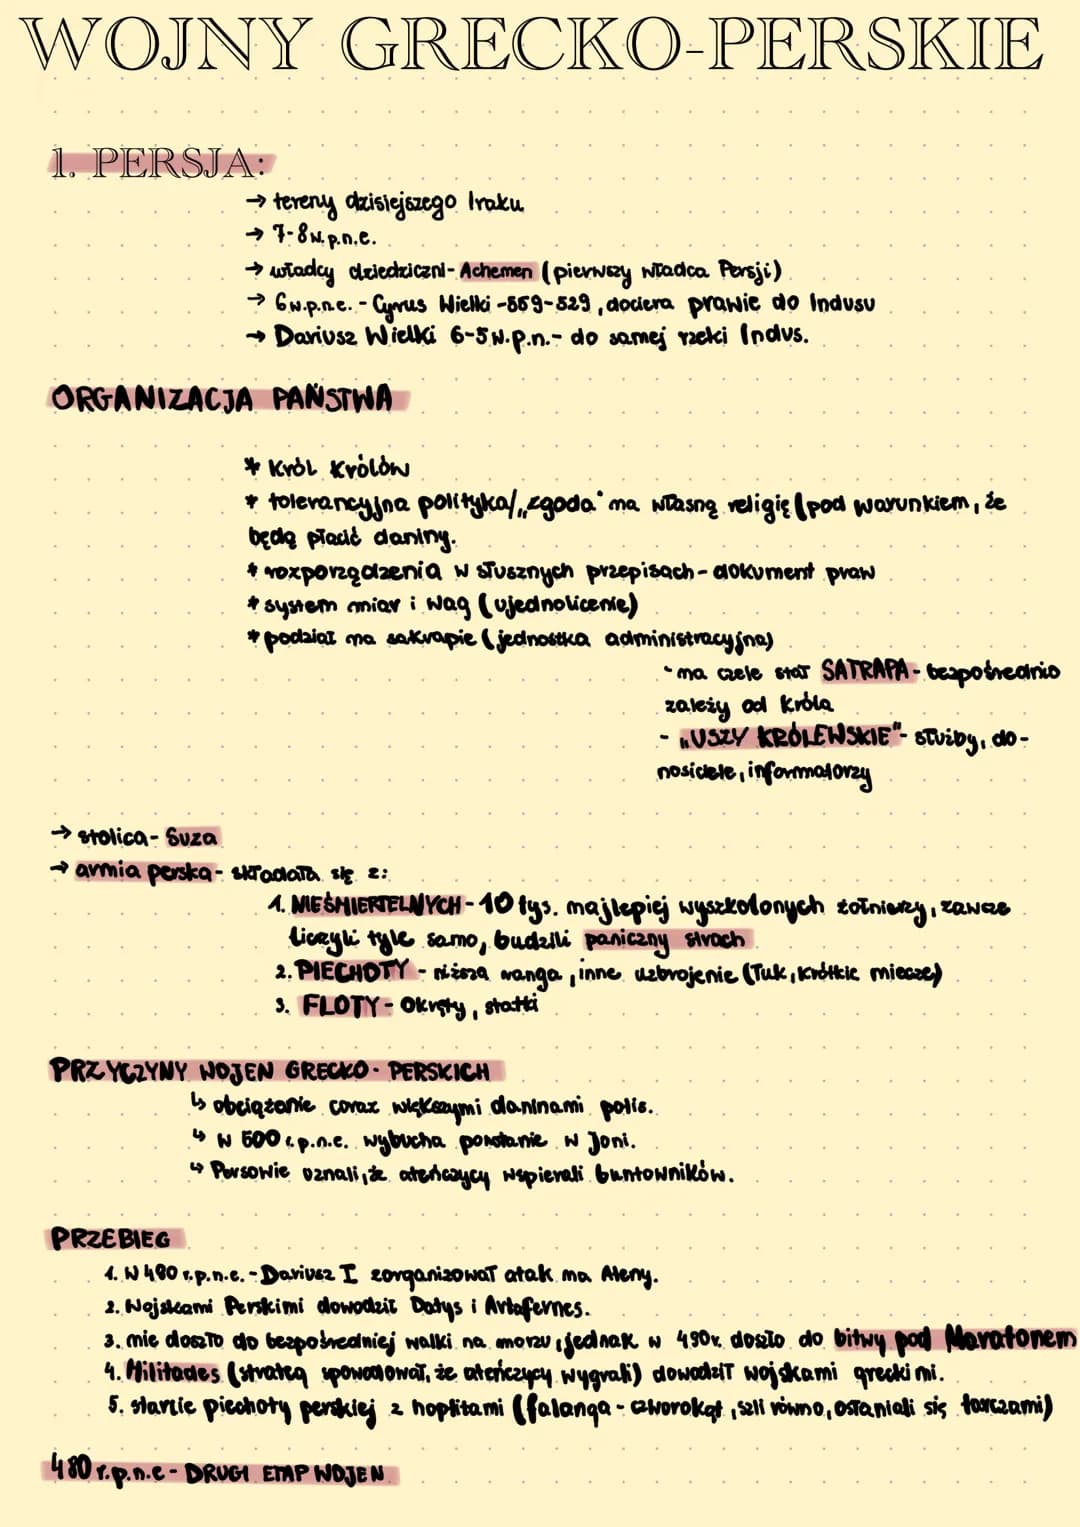 WOJNY GRECKO-PERSKIE
1. PERSJA:
→ tereny dzisiejszego Iraku
→ 7-8 w.p.n.e.
→ władcy dziedziczni- Achemen (pierwszy władca Persji)
→ 6w.p.n.e. - Cyrus Wielki -559-529, dociera prawie do Indusu
→ Dariusz Wielki 6-5 w.p.n.- do samej rzeki Indus.
ORGANIZACJA PAŃSTWA
* Król Królów
* tolerancyjna polityka/„zgoda" na własną religię (pod warunkiem, że
będą płacić daniny.
* rozporządzenia w słusznych przepisach- dokument praw
* system miar i wag (ujednolicenie)
* podział na sakrapie (jednostka administracyjna)
- na czele stał SATRAPA- bezpośrednio
zależy od króla
- „USZY KRÓLEWSKIE"- służby, do-
nosiciele, informatorzy
→ stolica- Suza
→ armia perska- składała się z:
1. NIEŚMIERTELNYCH- 10 tys. najlepiej wyszkolonych żołnierzy, zawsze
liczyli tyle samo, budzili paniczny strach
2. PIECHOTY - niższa ranga, inne uzbrojenie (łuk, krótkie miecze)
3. FLOTY- Okręty, statki
PRZYCZYNY WOJEN GRECKO- PERSKICH
↳ obciążanie coraz większymi daninami polis.
↳ w 500 r.p.n.e. wybucha powstanie w Joni.
↳ Persowie uznali, że ateńczycy wspierali buntowników.
PRZEBIEG
1. W 490 r.p.n.e. - Dariusz I zorganizował atak na Ateny.
2. Wojskami Perskimi dowodzić Datys i Artafernes.
3. nie doszło do bezpośredniej walki na morzu, jednak w 490r. doszło do bitwy pod Maratonem
4. Militades (strateg spowodował, że ateńczycy wygrali) dowodził wojskami greckimi.
5. starcie piechoty perskiej z hoplitami (falanga - czworokąt, szli równo, osłaniali się tarczami)
480 r.p.n.e - DRUGI ETAP WOJEN